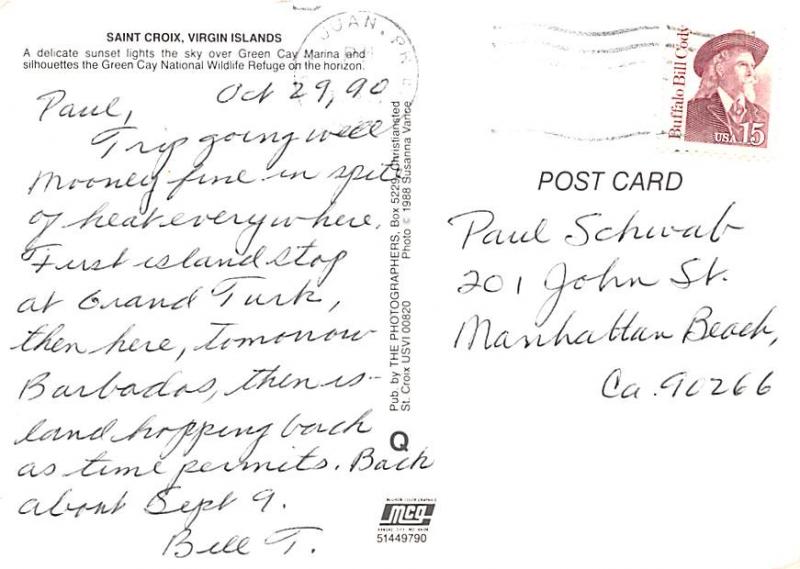 SAINT CROIX, VIRGIN ISLANDS
A delicate sunset lights the sky over Green Cay Marina and
silhouettes the Green Cay National Wildlife Refuge on the horizon.
Oct 29, 90
Paul,
Trip going well
Mooney fine in spite
of heat everywhere.
First island stop
at Grand Turk,
then here, tomorrow
Barbados, then is-
land hopping back
as time permits. Back
about Sept 9.
Bill T.
Pub. by THE PHOTOGRAPHERS, Box 5229, Christiansted
St. Croix USVI 00820 Photo © 1988 Susanna Vance
Q
mcg
51449790
JUAN, PR
Buffalo Bill Cody
USA 15
POST CARD
Paul Schwab
201 John St.
Manhattan Beach,
Ca. 90266